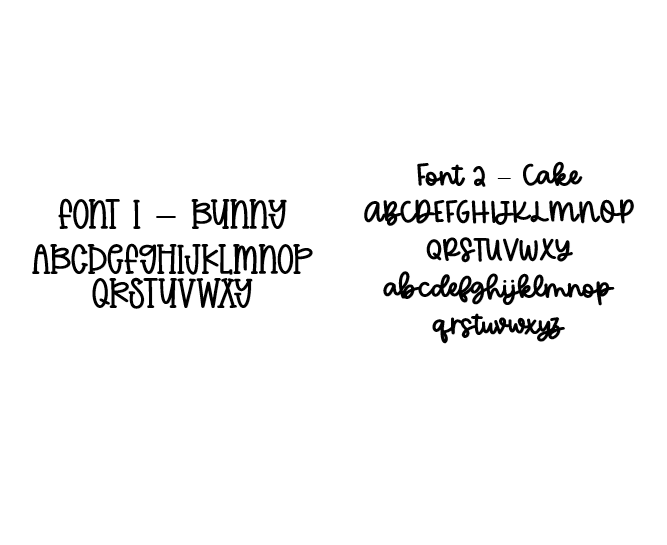 FONT 1 – BUNNY
ABCDEFGHIJKLMNOP
QRSTUVWXY
Font 2 – Cake
ABCDEFGHIJKLMNOP
QRSTUVWXY
abcdefghijklmnop
qrstuvwxyz